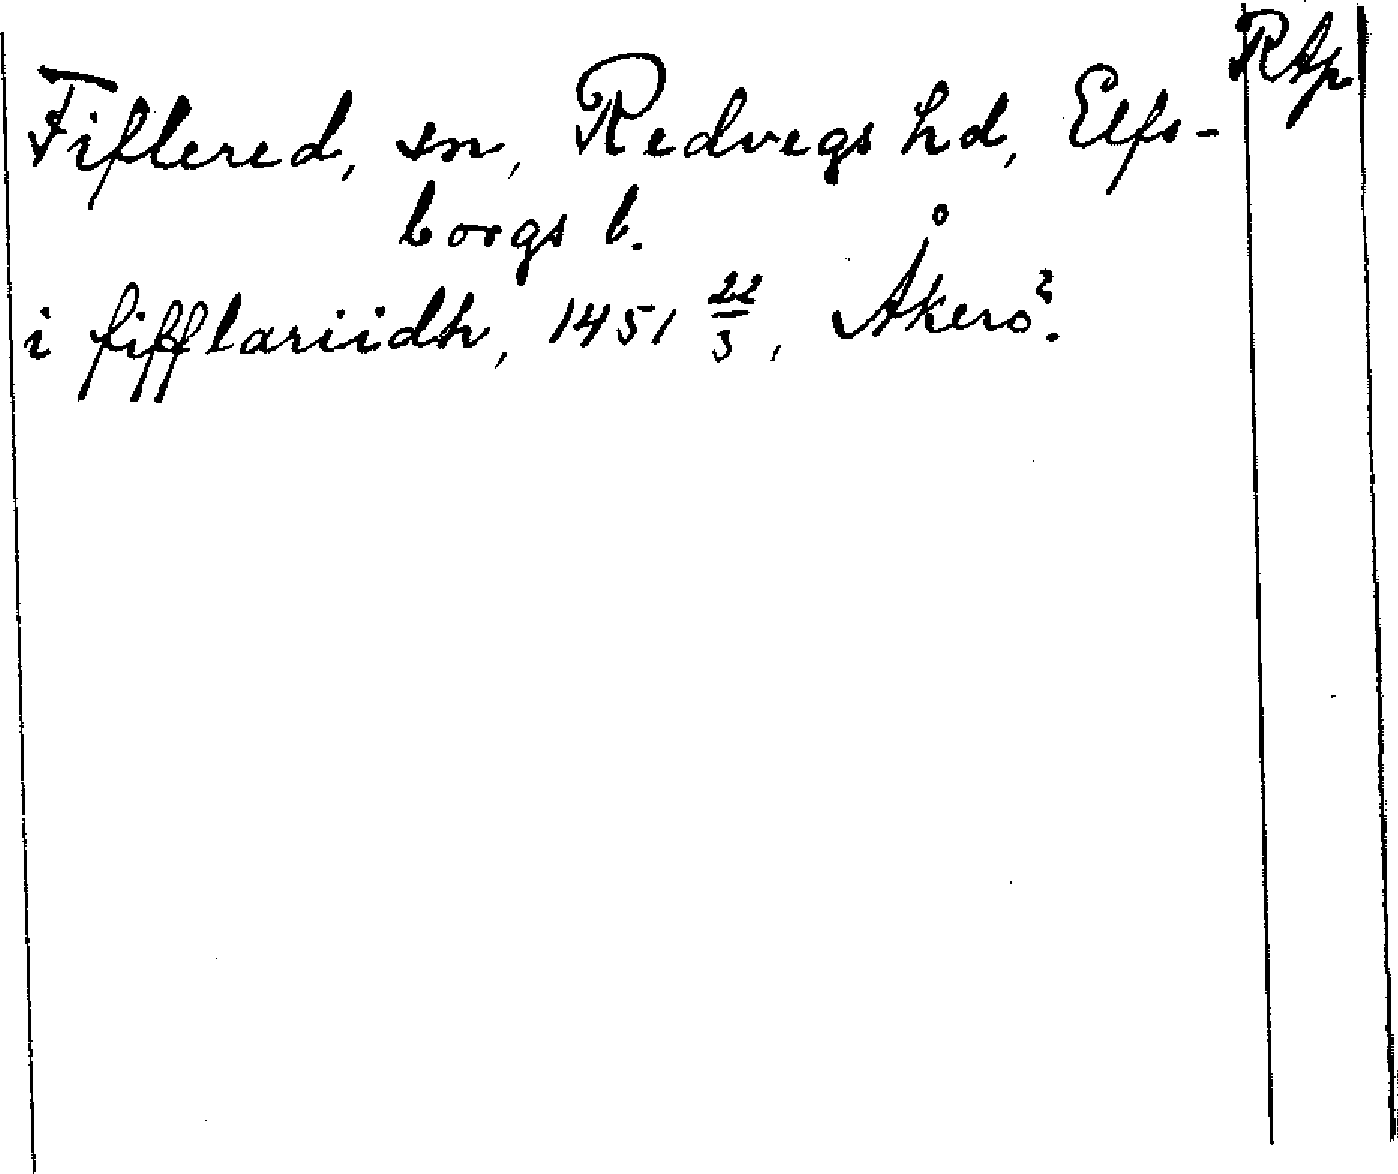 RAp
Fiflered, sn, Redvegs hd, Elfs-
borgs l.
i fifflariidh, 1451 22/3, Åkerö?